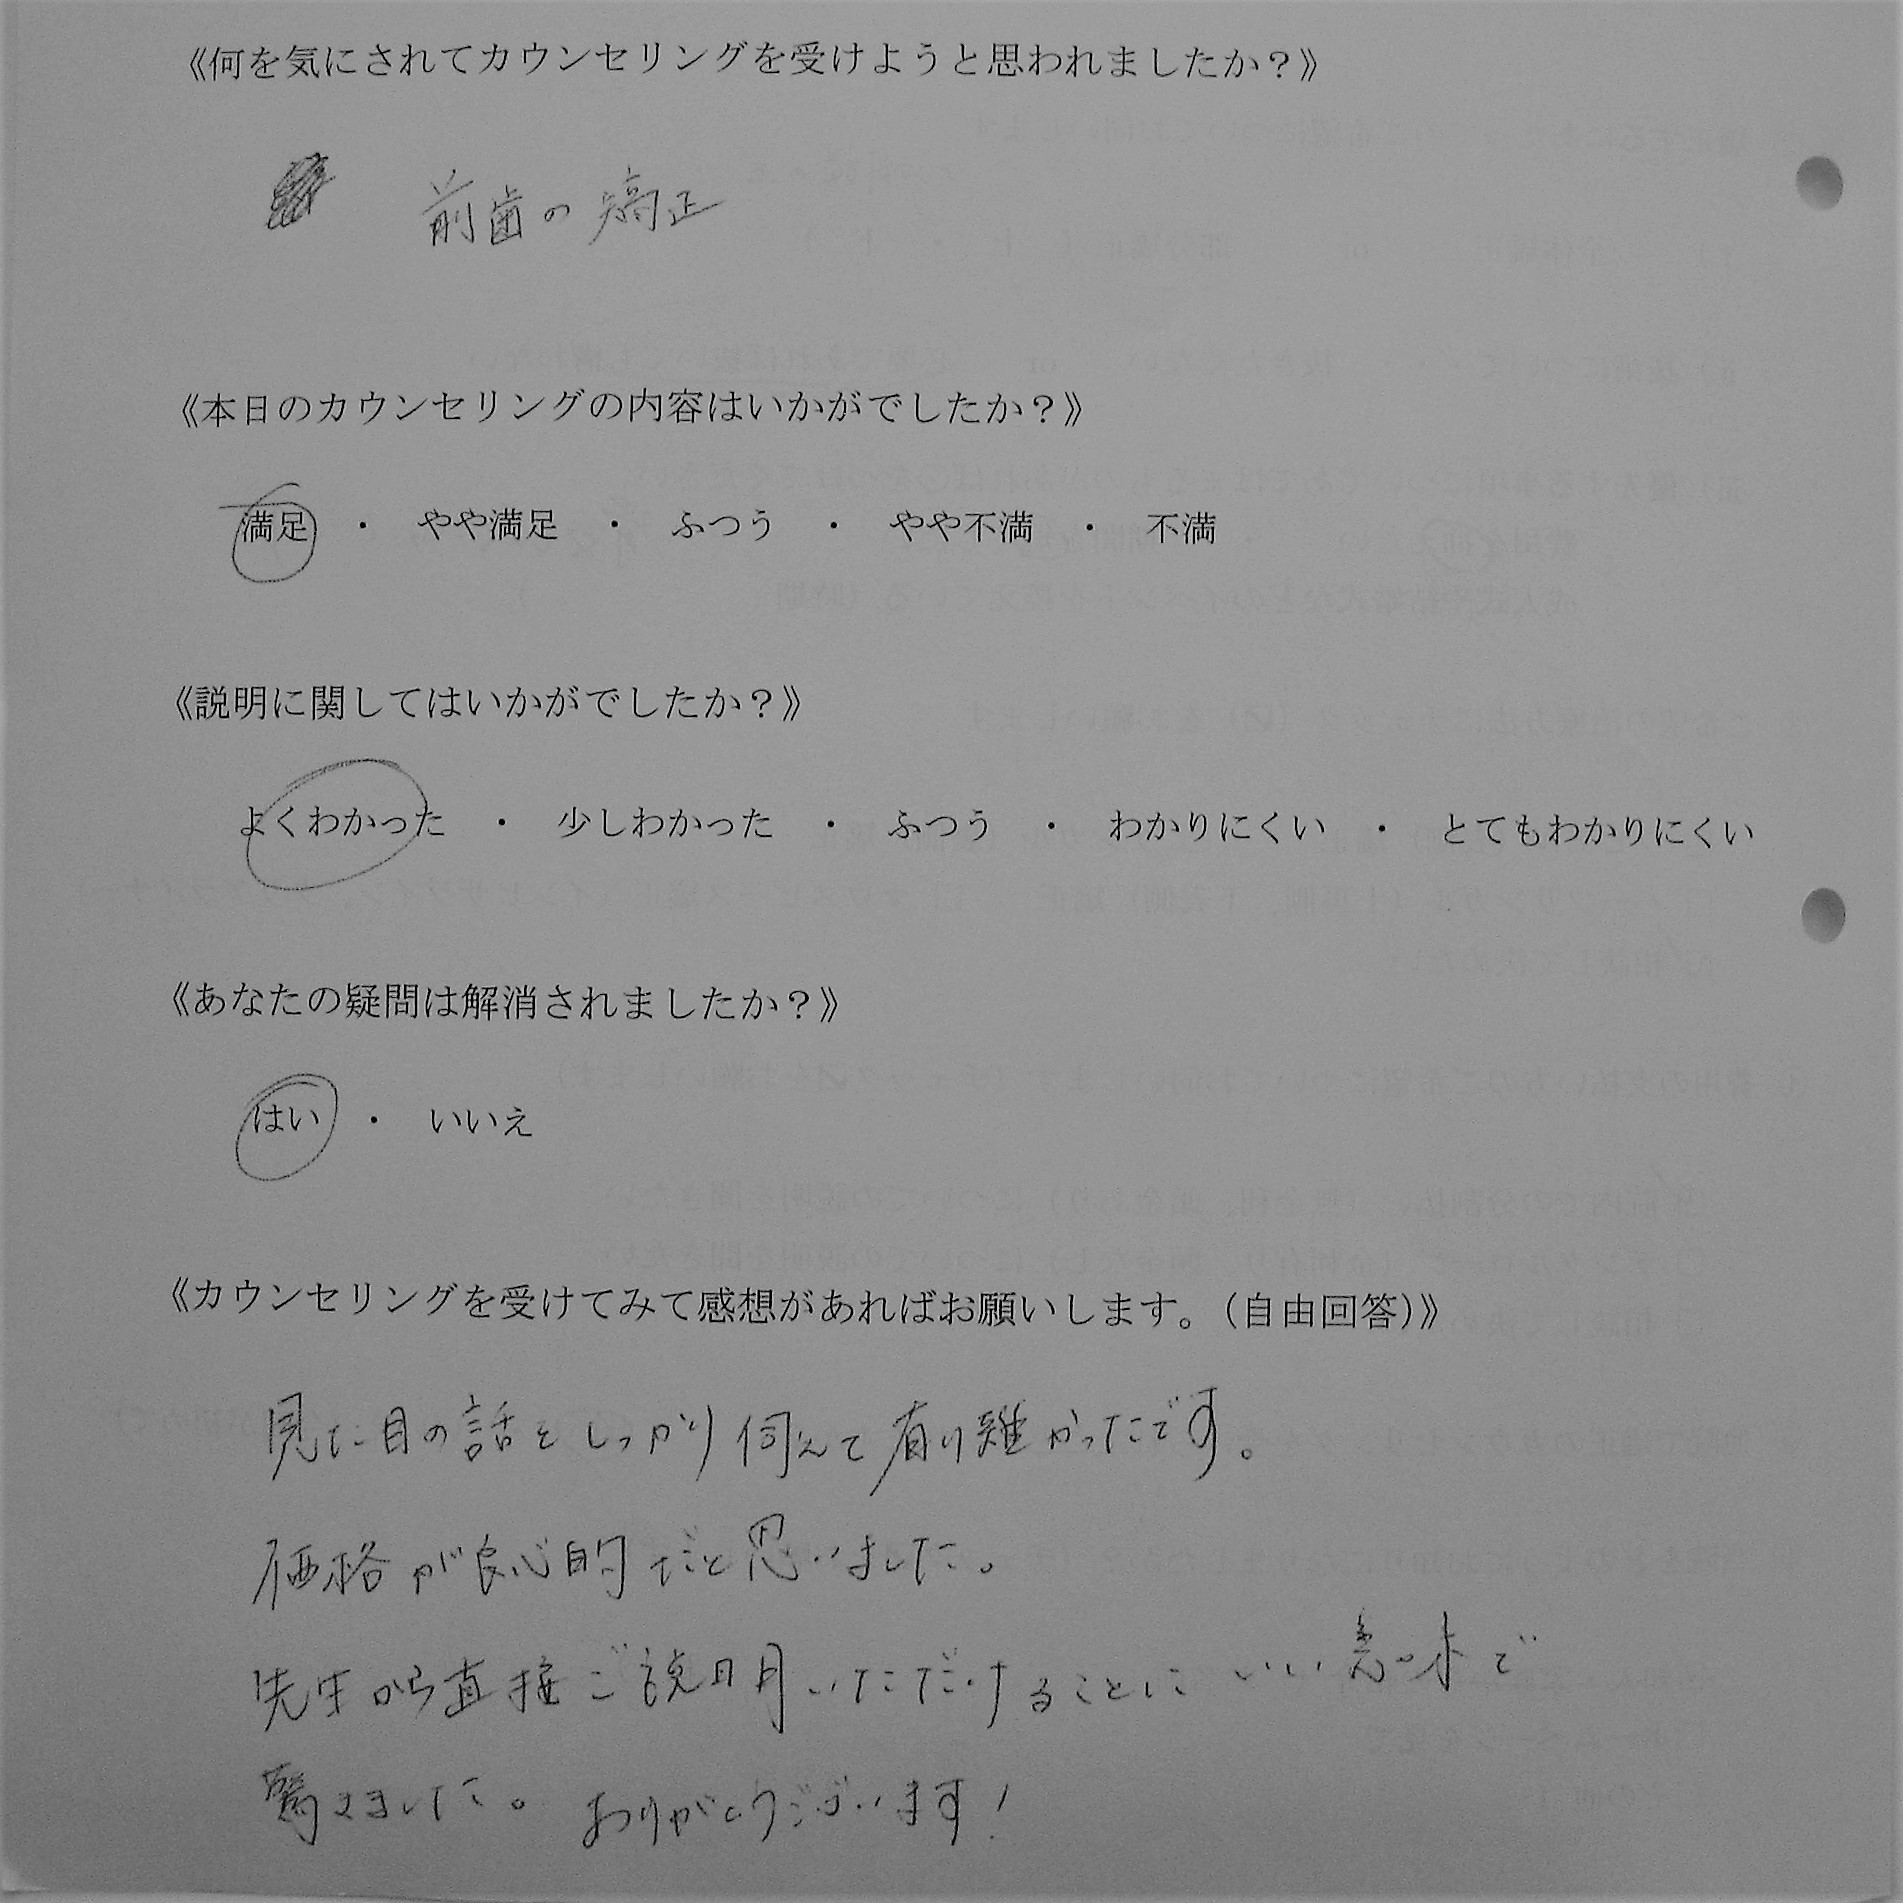 《何を気にされてカウンセリングを受けようと思われましたか？》
前歯の矯正
《本日のカウンセリングの内容はいかがでしたか？》
満足 ・ やや満足 ・ ふつう ・ やや不満 ・ 不満
《説明に関してはいかがでしたか？》
よくわかった ・ 少しわかった ・ ふつう ・ わかりにくい ・ とてもわかりにくい
《あなたの疑問は解消されましたか？》
はい ・ いいえ
《カウンセリングを受けてみて感想があればお願いします。（自由回答）》
見た目の話をしっかり伺えて有り難かったです。
価格が良心的だと思いました。
先生から直接ご説明いただけることにいい意味で
驚きました。ありがとうございます！